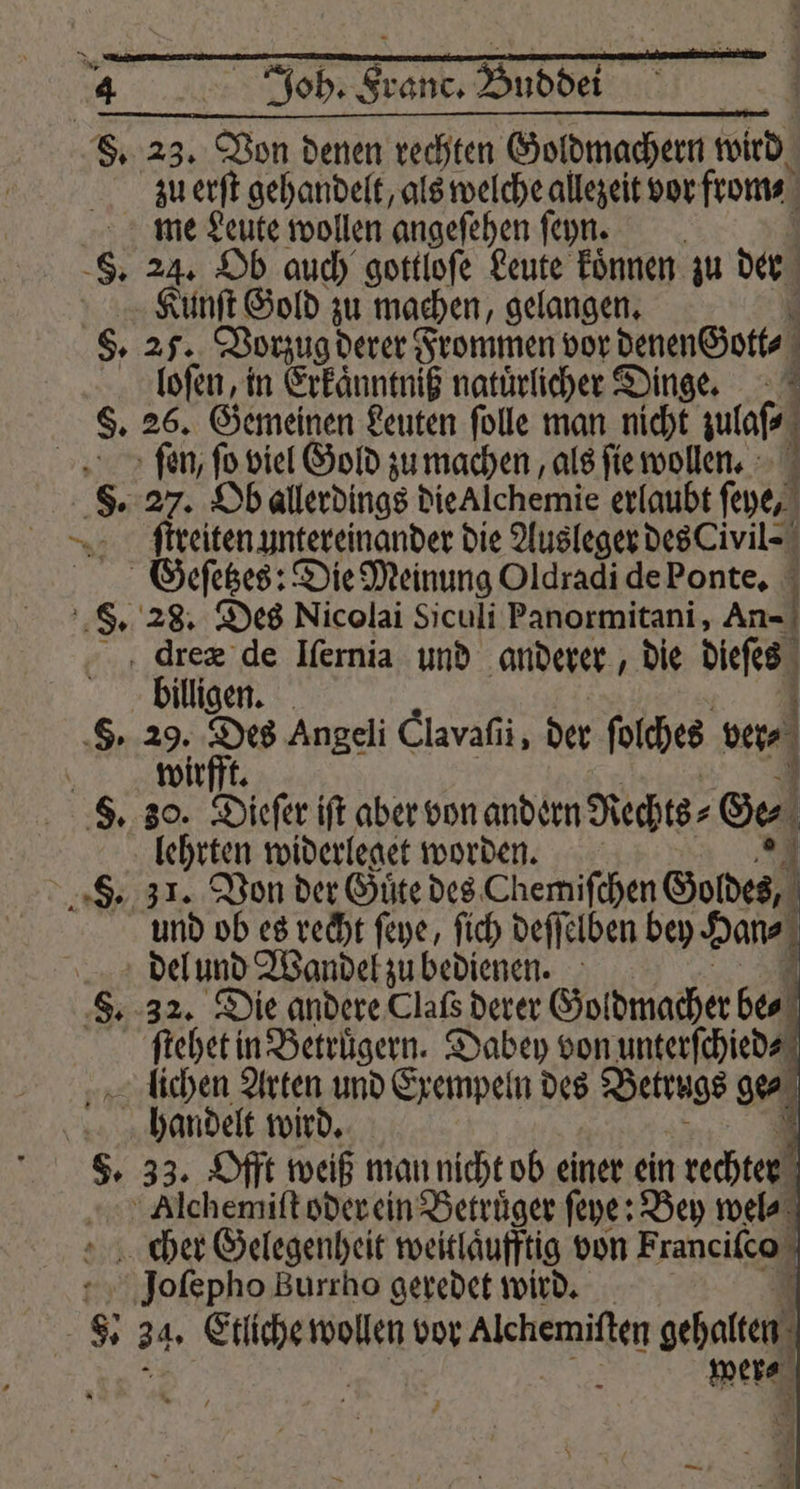 4 Joh. Franc. Buddei
§. 23. Von denen rechten Goldmachern wird
zu erſt gehandelt, als welche allezeit vor from⸗
me Leute wollen angeſehen ſeyn.
§. 24. Ob auch gottloſe Leute koͤnnen zu der
Kunſt Gold zu machen, gelangen.
§. 25. Vorzug derer Frommen vor denen Gott⸗
loſen, in Erkaͤnntniß natuͤrlicher Dinge.
§. 26. Gemeinen Leuten ſolle man nicht zulaſ⸗
ſen, ſo viel Gold zu machen, als ſie wollen.
§. 27. Ob allerdings die Alchemie erlaubt ſeye,
ſtreiten untereinander die Ausleger des Civil-
Geſetzes: Die Meinung Oldradi de Ponte.
§. 28. Des Nicolai Siculi Panormitani, An-
dreæ de Iſernia und anderer, die dieſes
billigen.
§. 29. Des Angeli Clavaſii, der ſolches ver⸗
wirfft.
§. 30. Dieſer iſt aber von andern Rechts⸗Ge⸗
lehrten widerleget worden.
§. 31. Von der Guͤte des Chemiſchen Goldes,
und ob es recht ſeye, ſich deſſelben bey Han⸗
del und Wandel zu bedienen.
§. 32. Die andere Claſs derer Goldmacher be⸗
ſtehet in Betruͤgern. Dabey von unterſchied⸗
lichen Arten und Exempeln des Betrugs ge⸗
handelt wird.
§. 33. Offt weiß man nicht ob einer ein rechter
Alchemiſt oder ein Betruͤger ſeye: Bey wel⸗
cher Gelegenheit weitlaͤufftig von Franciſco
Joſepho Burrho geredet wird.
§. 34. Etliche wollen vor Alchemiſten gehalten
wer⸗